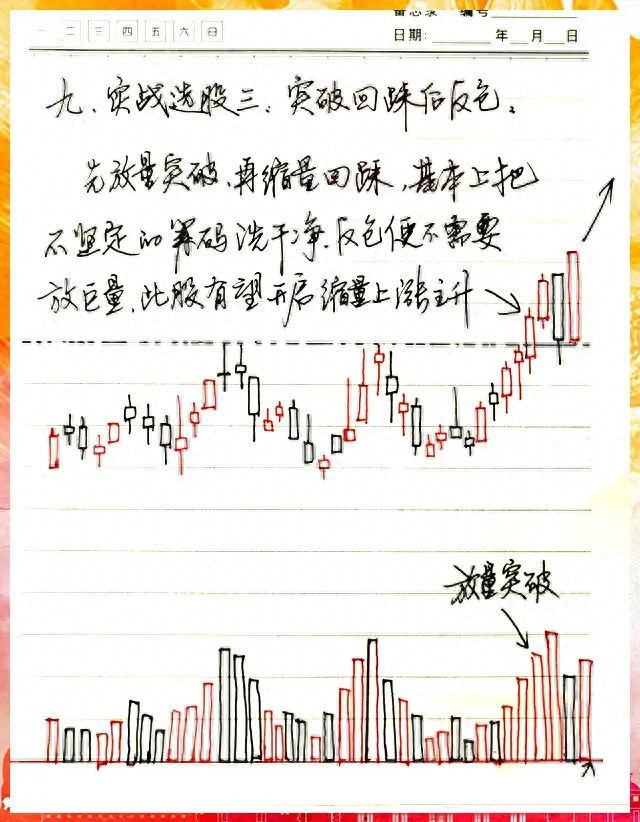 一 二 三 四 五 六 日
备忘录 编号
日期: 年 月 日
九、实战选股三：突破回踩后反包。
先放量突破,再缩量回踩,基本上把
不坚定的筹码洗干净.反包便不需要
放巨量,此股有望开启缩量上涨主升
放量突破